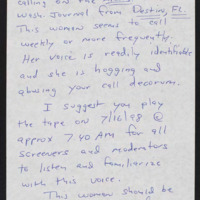 calling on the
Wash. Journal from Destin, FL.
This woman seems to call
weekly or more frequently.
Her voice is readily identifiable
and she is hogging and
abusing your call decorum.
I suggest you play
the tape on 7/16/98 @
approx 7:40 AM for all
screeners and moderators
to listen and familiarize
with this voice.
This woman should be